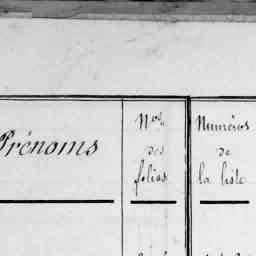 Prénoms
Nos.
des
folios.
Numéros
de
la liste